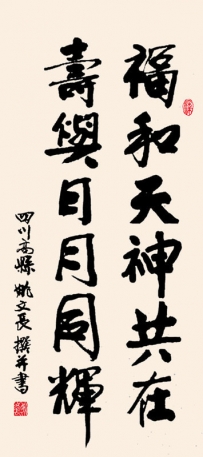 福和天神共在
壽與日月同輝
四川高縣 姚文長 撰并書